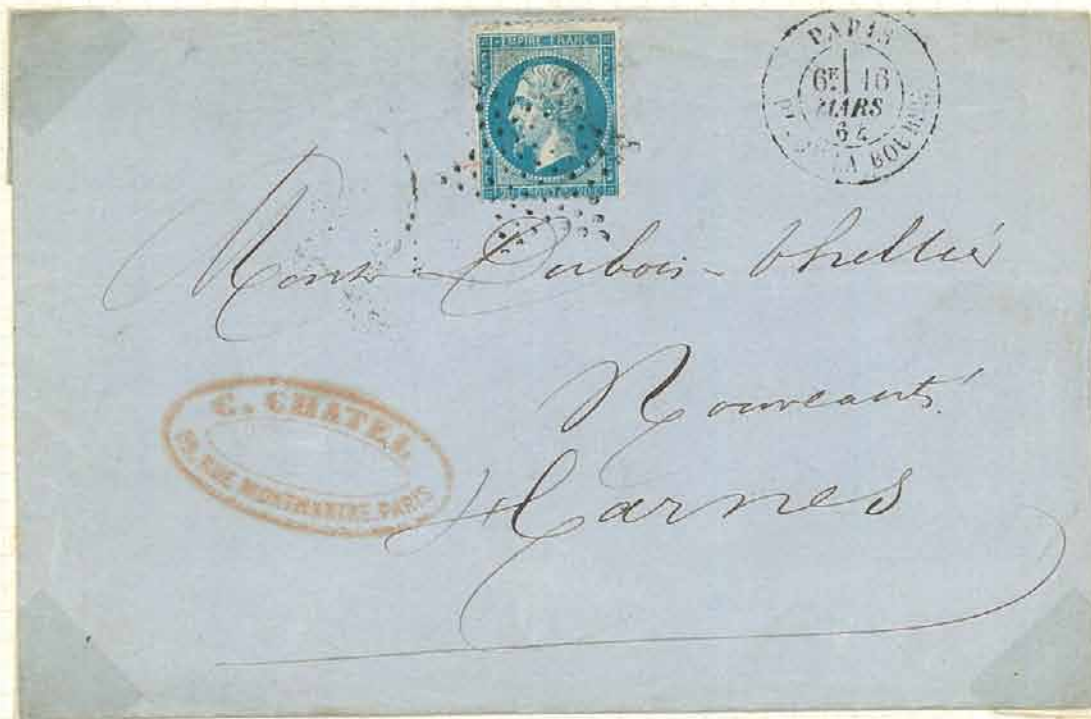 EMPIRE FRANC
PARIS
6E 16
MARS
64
PL. DE LA BOURSE
Mons Dubois-Thellier
Nouveautés
Carnes
C. CHATEL
RUE MONTMARTRE PARIS